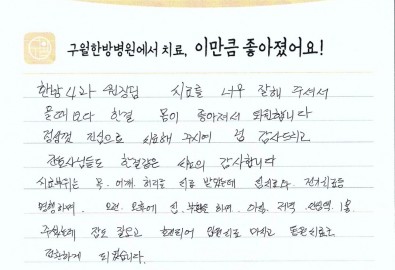 구월한방병원에서 치료, 이만큼 좋아졌어요!
한남4과 원장님 치료를 너무 잘해 주셔서
올때보다 한결 몸이 좋아져서 퇴원합니다
정성껏 진심으로 치료해 주시에 넘 감사드리고
간호사님들도 한결같은 감사합니다
치료부위는 목. 어깨. 허리로 치료 받았는데 전기치료등
병행하며. 오전. 오후에 침. 부항을 하며. 아침. 저녁
주셨는데 잠도 잘오고 호전되어 입원치료 마치고 통원치료로
전환하게 되었습니다.